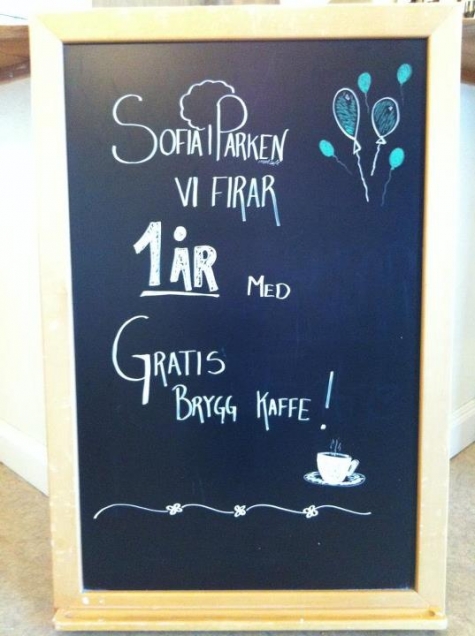 SOFIA I PARKEN
VI FIRAR
1 ÅR MED
GRATIS
BRYGG KAFFE!